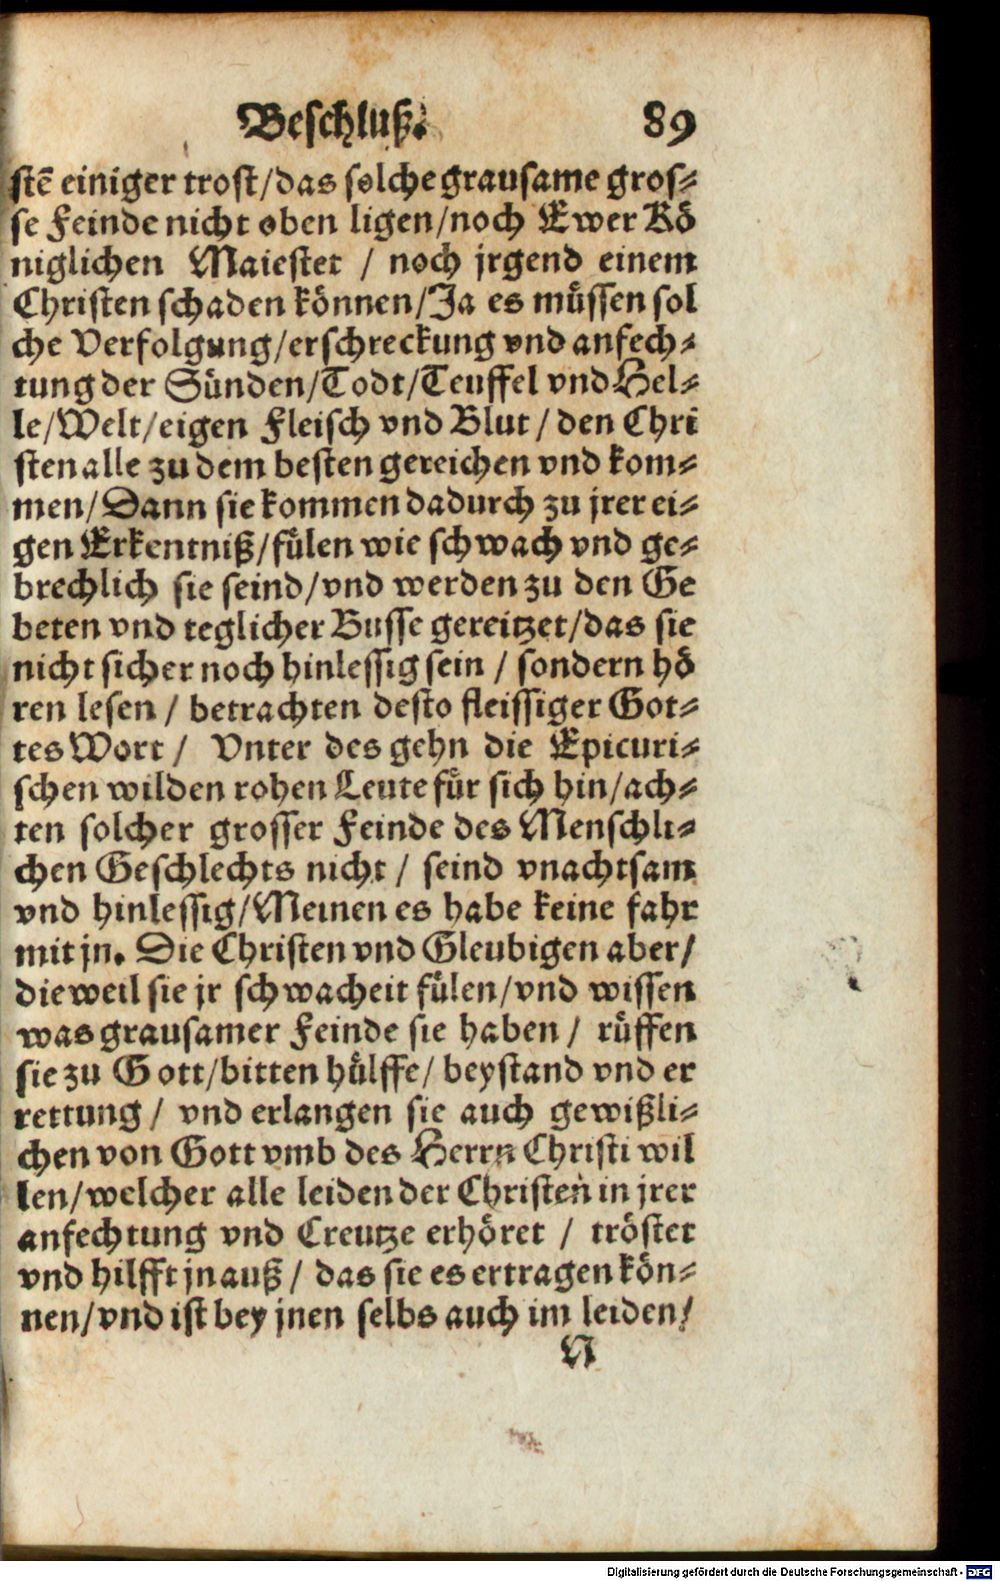 Beschluß. 89
stē einiger trost/das solche grausame gros-
se Feinde nicht oben ligen/noch Ewer Kö
niglichen Maiestet / noch jrgend einem
Christen schaden können/Ja es müssen sol
che Verfolgung/erschreckung vnd anfech-
tung der Sünden/Todt/Teuffel vnd Hel-
le/Welt/eigen Fleisch vnd Blut / den Chri
sten alle zu dem besten gereichen vnd kom-
men/Dann sie kommen dadurch zu jrer ei-
gen Erkentniß/fülen wie schwach vnd ge-
brechlich sie seind/vnd werden zu den Ge
beten vnd teglicher Busse gereitzet/das sie
nicht sicher noch hinlessig sein / sondern hö
ren lesen / betrachten desto fleissiger Got-
tes Wort / Vnter des gehn die Epicuri-
schen wilden rohen Leute für sich hin/ach-
ten solcher grosser Feinde des Menschli-
chen Geschlechts nicht / seind vnachtsam
vnd hinlessig/Meinen es habe keine fahr
mit jn. Die Christen vnd Gleubigen aber/
dieweil sie jr schwacheit fülen/vnd wissen
was grausamer Feinde sie haben / rüffen
sie zu Gott/bitten hülffe/ beystand vnd er
rettung / vnd erlangen sie auch gewißli-
chen von Gott vmb des Herrn Christi wil
len/welcher alle leiden der Christen in jrer
anfechtung vnd Creutze erhöret / tröstet
vnd hilfft jn auß / das sie es ertragen kön-
nen/vnd ist bey jnen selbs auch im leiden/
N
Digitalisierung gefördert durch die Deutsche Forschungsgemeinschaft - DFG